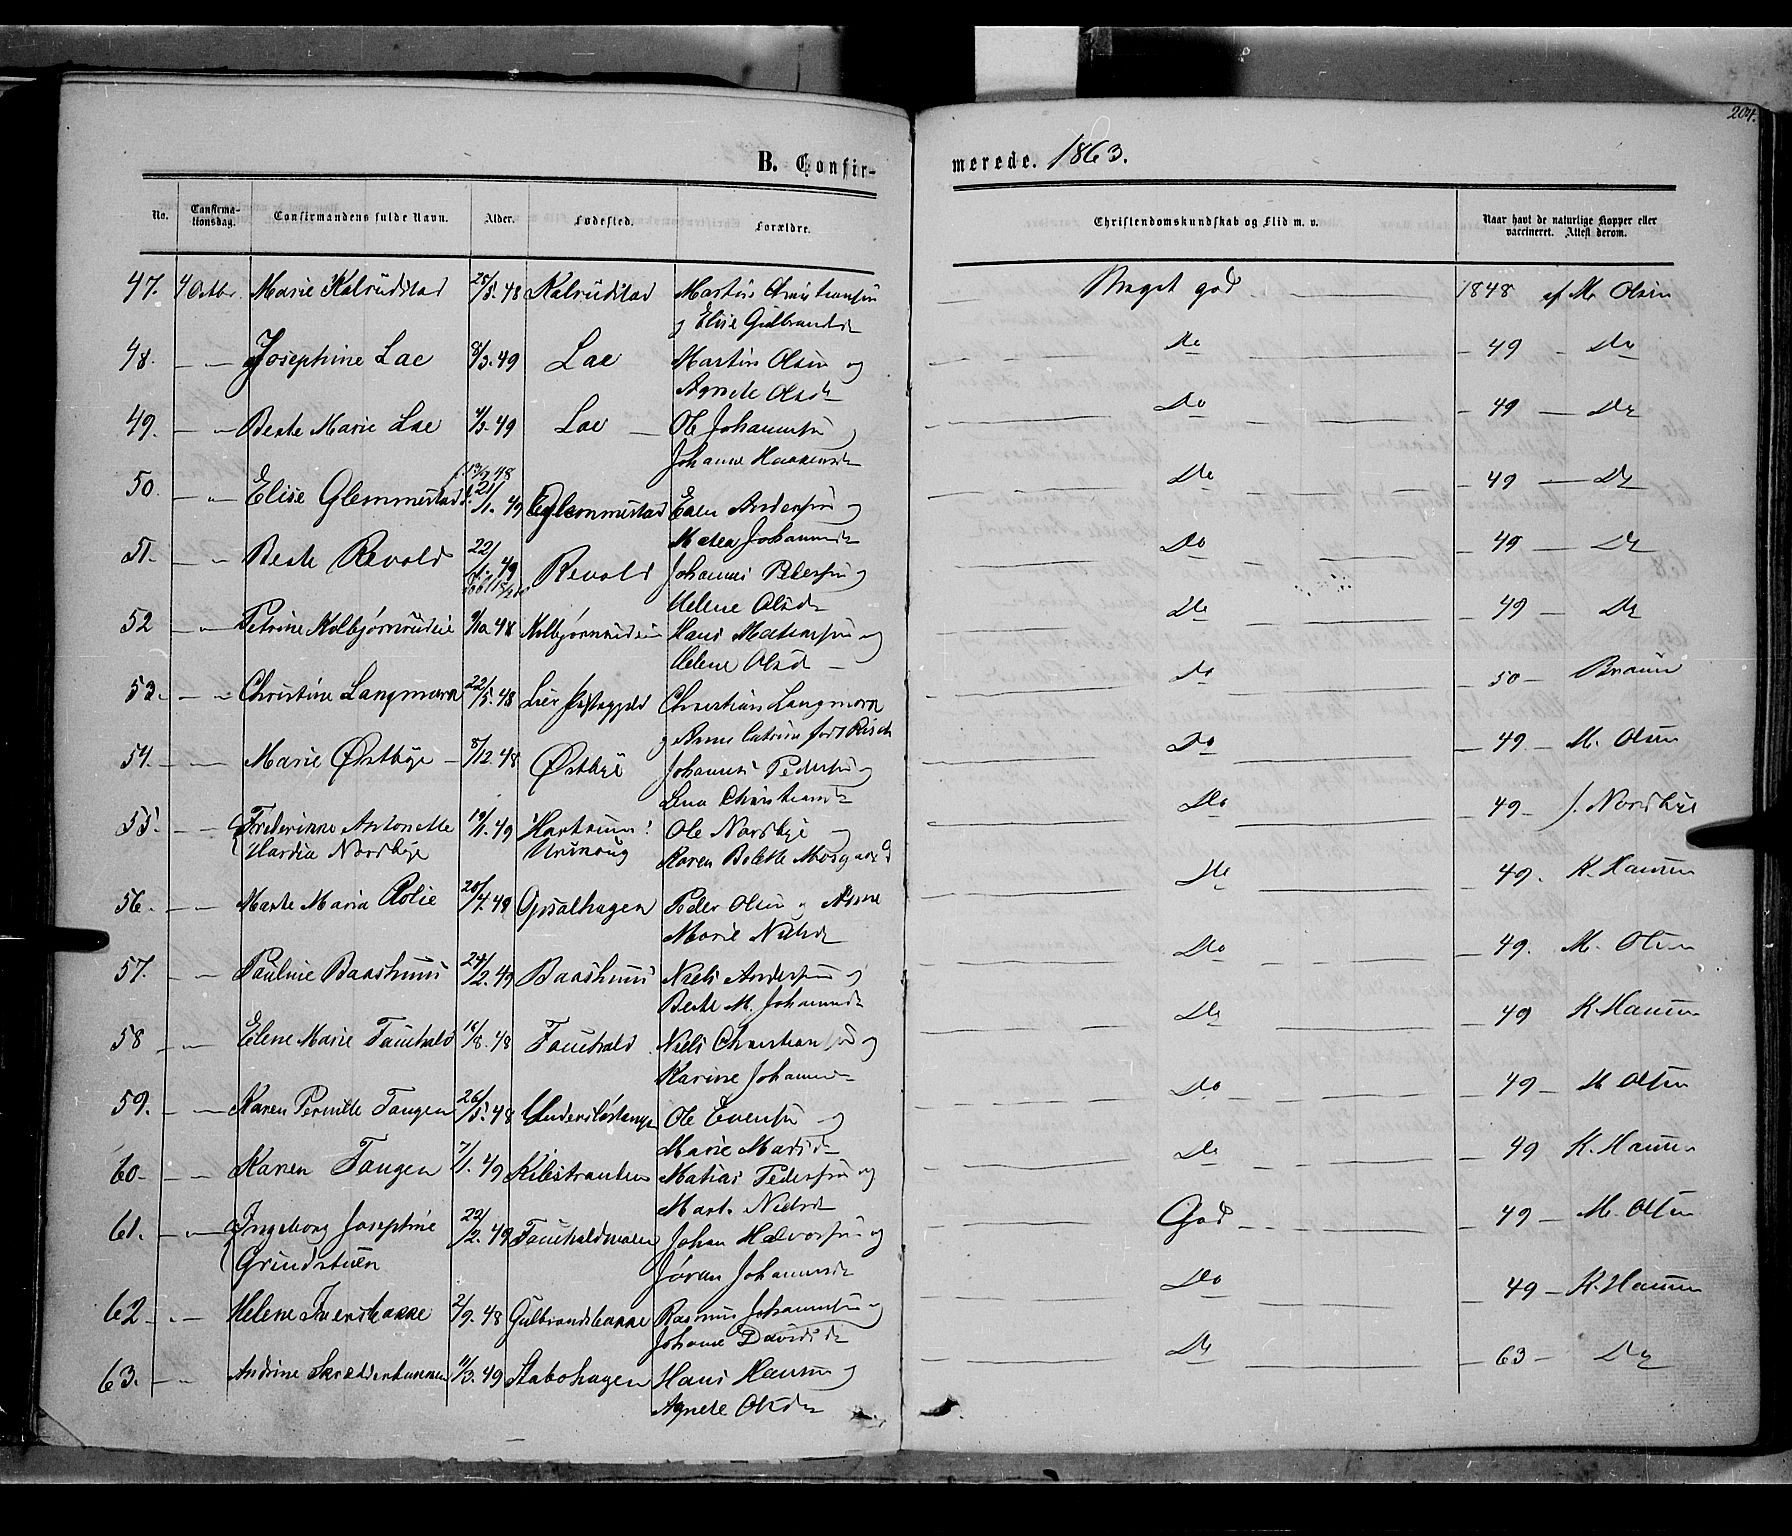 204.
B. Confir-
merede. 1863.
No.
Confirma-
tionsdag.
Confirmandens fulde Navn.
Alder.
Fødested.
Forældre.
Christendomskundskab og Flid m. v.
Naar havt de naturlige Kopper eller
vaccineret. Attest derom.
47. 4 Octbr. Marie Kalrudstad 25/5. 48 Kalrudstad Martin Christiansen Meget god 1848 af M. Olsen
og Elise Gulbrandsd
48. — „ — Josephine Lae 8/3. 49 Lae Martin Olsen og Do — 49 — Do
Agnete Olsd
49. — „ Beate Marie Lae 4/3. 49 Lae — Ole Johannesen og Do — 49 — Do
Johanne Haakensd
50. — „ Elise Glemmestad 21/1. 49 Glemmestad Even Andersen og Do — 49 — Do
Mathea Johannesd
51. — „ Beate Revold 22/1. 49 Revold Johannes Pedersen og Do — 49 — Do
Helene Olsd
52 — „ Petrine Kolbjørnrudeie 9/10 48 Kolbjørnrudeie Hans Mathisen og Do — 49 — Do
Helene Olsd —
53. — „ Christine Langmoen 22/5. 48 Lier Christian Langmoen Do — 50 — Braun
og Anne Catrine født Risch
54. — — Marie Østbye — 8/12. 48 Østbye Johannes Pedersen og Do — 49 — M. Olsen
Lena Christiansd
55. — „ — Frederikke Antonette 19/1. 49 Ole Nordbye og Do — 49 — J. Nordbye
Nordbye Karen Bolette Mosgaard
56. — „ — Marte Maria Rolie 20/4. 49 Opsalhagen Peder Olsen og Anne Do — 49. K. Hansen
Marie Nielsd
57. — „ — Pauline Baashuus 24/2. 49 Baashuus Niels Andersen og Do — 49. M. Olsen
Beate M. Johannesd
58 — „ — Elene Marie Fauchald 16/8. 48 Fauchald Niels Christiansen og Do — 49 K. Hansen
Karine Johannesd
59. — „ — Karen Pernille Tangen 26/5. 48 Ole Evensen og Do — 49 — M. Olsen
Marie Madsd
60. — „ — Karen Tangen 7/1. 49 Kilestranden Mathias Pedersen og Do — 49 K. Hansen
Mart. Nielsd
61. — „ — Ingeborg Josephine 22/2. 49 Johan Halvorsen og God — 49 — M. Olsen
Grindstuen Jøran Johannesd
62. — „ — Helene Iversbakke 2/9. 48 Gulbrandsbakke Rasmus Johannesen og Do — 49 K. Hansen
Johanne Davidsd
63. — „ Andrine 11/3. 49 Stabohagen Hans Hansen og Do — 63 — Do
Agnete Olsd